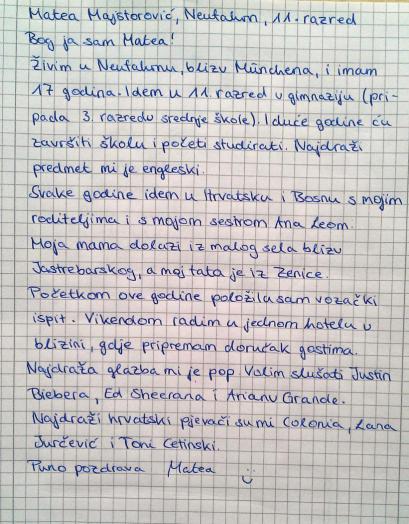 Matea Majstorović, Neufahrn, 11. razred
Bog ja sam Matea!
Živim u Neufahrnu, blizu Münchena, i imam
17 godina. Idem u 11. razred u gimnaziju (pri-
pada 3. razredu srednje škole). Iduće godine ću
završiti školu i početi studirati. Najdraži
predmet mi je engleski.
Svake godine idem u Hrvatsku i Bosnu s mojim
roditeljima i s mojom sestrom Ana Leom.
Moja mama dolazi iz malog sela blizu
Jastrebarskog, a moj tata je iz Zenice.
Početkom ove godine položila sam vozački
ispit. Vikendom radim u jednom hotelu u
blizini, gdje pripremam doručak gostima.
Najdraža glazba mi je pop. Volim slušati Justin
Biebera, Ed Sheerana i Arianu Grande.
Najdraži hrvatski pjevači su mi Colonia, Lana
Jurčević i Toni Cetinski.
Puno pozdrava Matea